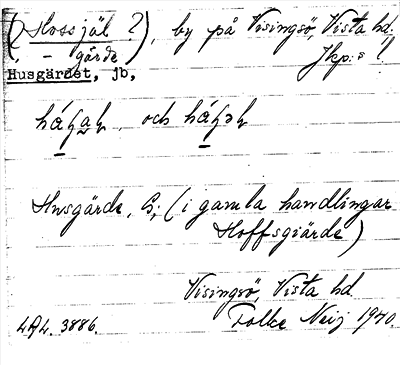 (Hossjäl ?), by på Visingsö, Vista hd.
(, - gärde) Jkp:s l.
Husgärdet, jb,
och
Husgärde, G; (i gamla handlingar
Hoffsgiärde)
Visingsö, Vista hd
LAL. 3886. Folke Neij 1940.